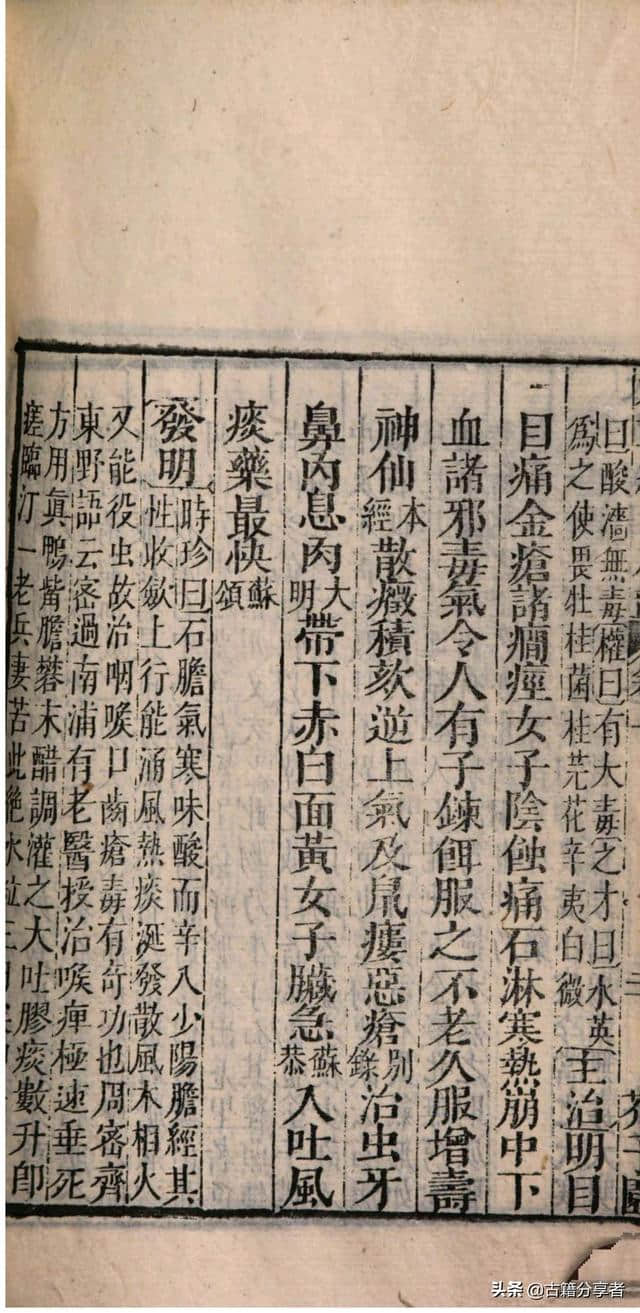 曰酸濇無毒權曰有大毒之才曰水英
為之使畏牡桂菌桂芫花辛夷白微
主治明目
目痛金瘡諸癇痙女子陰蝕痛石淋寒熱崩中下
血諸邪毒氣令人有子鍊餌服之不老久服增壽
神仙本經散癥積欬逆上氣及鼠瘻惡瘡別錄治虫牙
鼻內息肉大明帶下赤白面黃女子臟急蘇恭入吐風
痰藥最快蘇頌
發明時珍曰石膽氣寒味酸而辛入少陽膽經其
性收斂上行能涌風熱痰涎發散風木相火
又能役虫故治咽喉口齒瘡毒有奇功也周密齊
東野語云密過南浦有老醫授治喉痺極速垂死
方用眞鴨觜膽礬末醋調灌之大吐膠痰數升即
瘥臨汀一老兵妻苦此絕水粒三日
头条 @古籍分享者